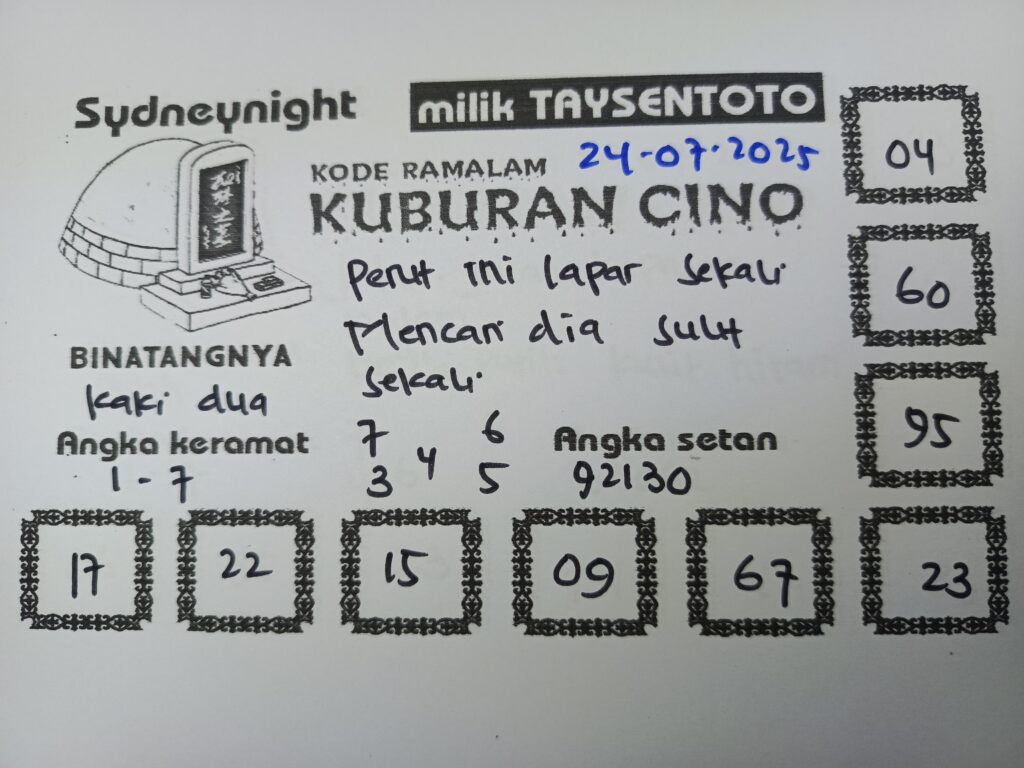 Sydneynight
milik TAYSENTOTO
KODE RAMALAM 24-07-2025
KUBURAN CINO
Perut ini lapar sekali
Mencari dia sulit
sekali
BINATANGNYA
kaki dua
Angka keramat
1 - 7
7 6
4
3 5
Angka setan
92130
04
60
95
17 22 15 09 67 23